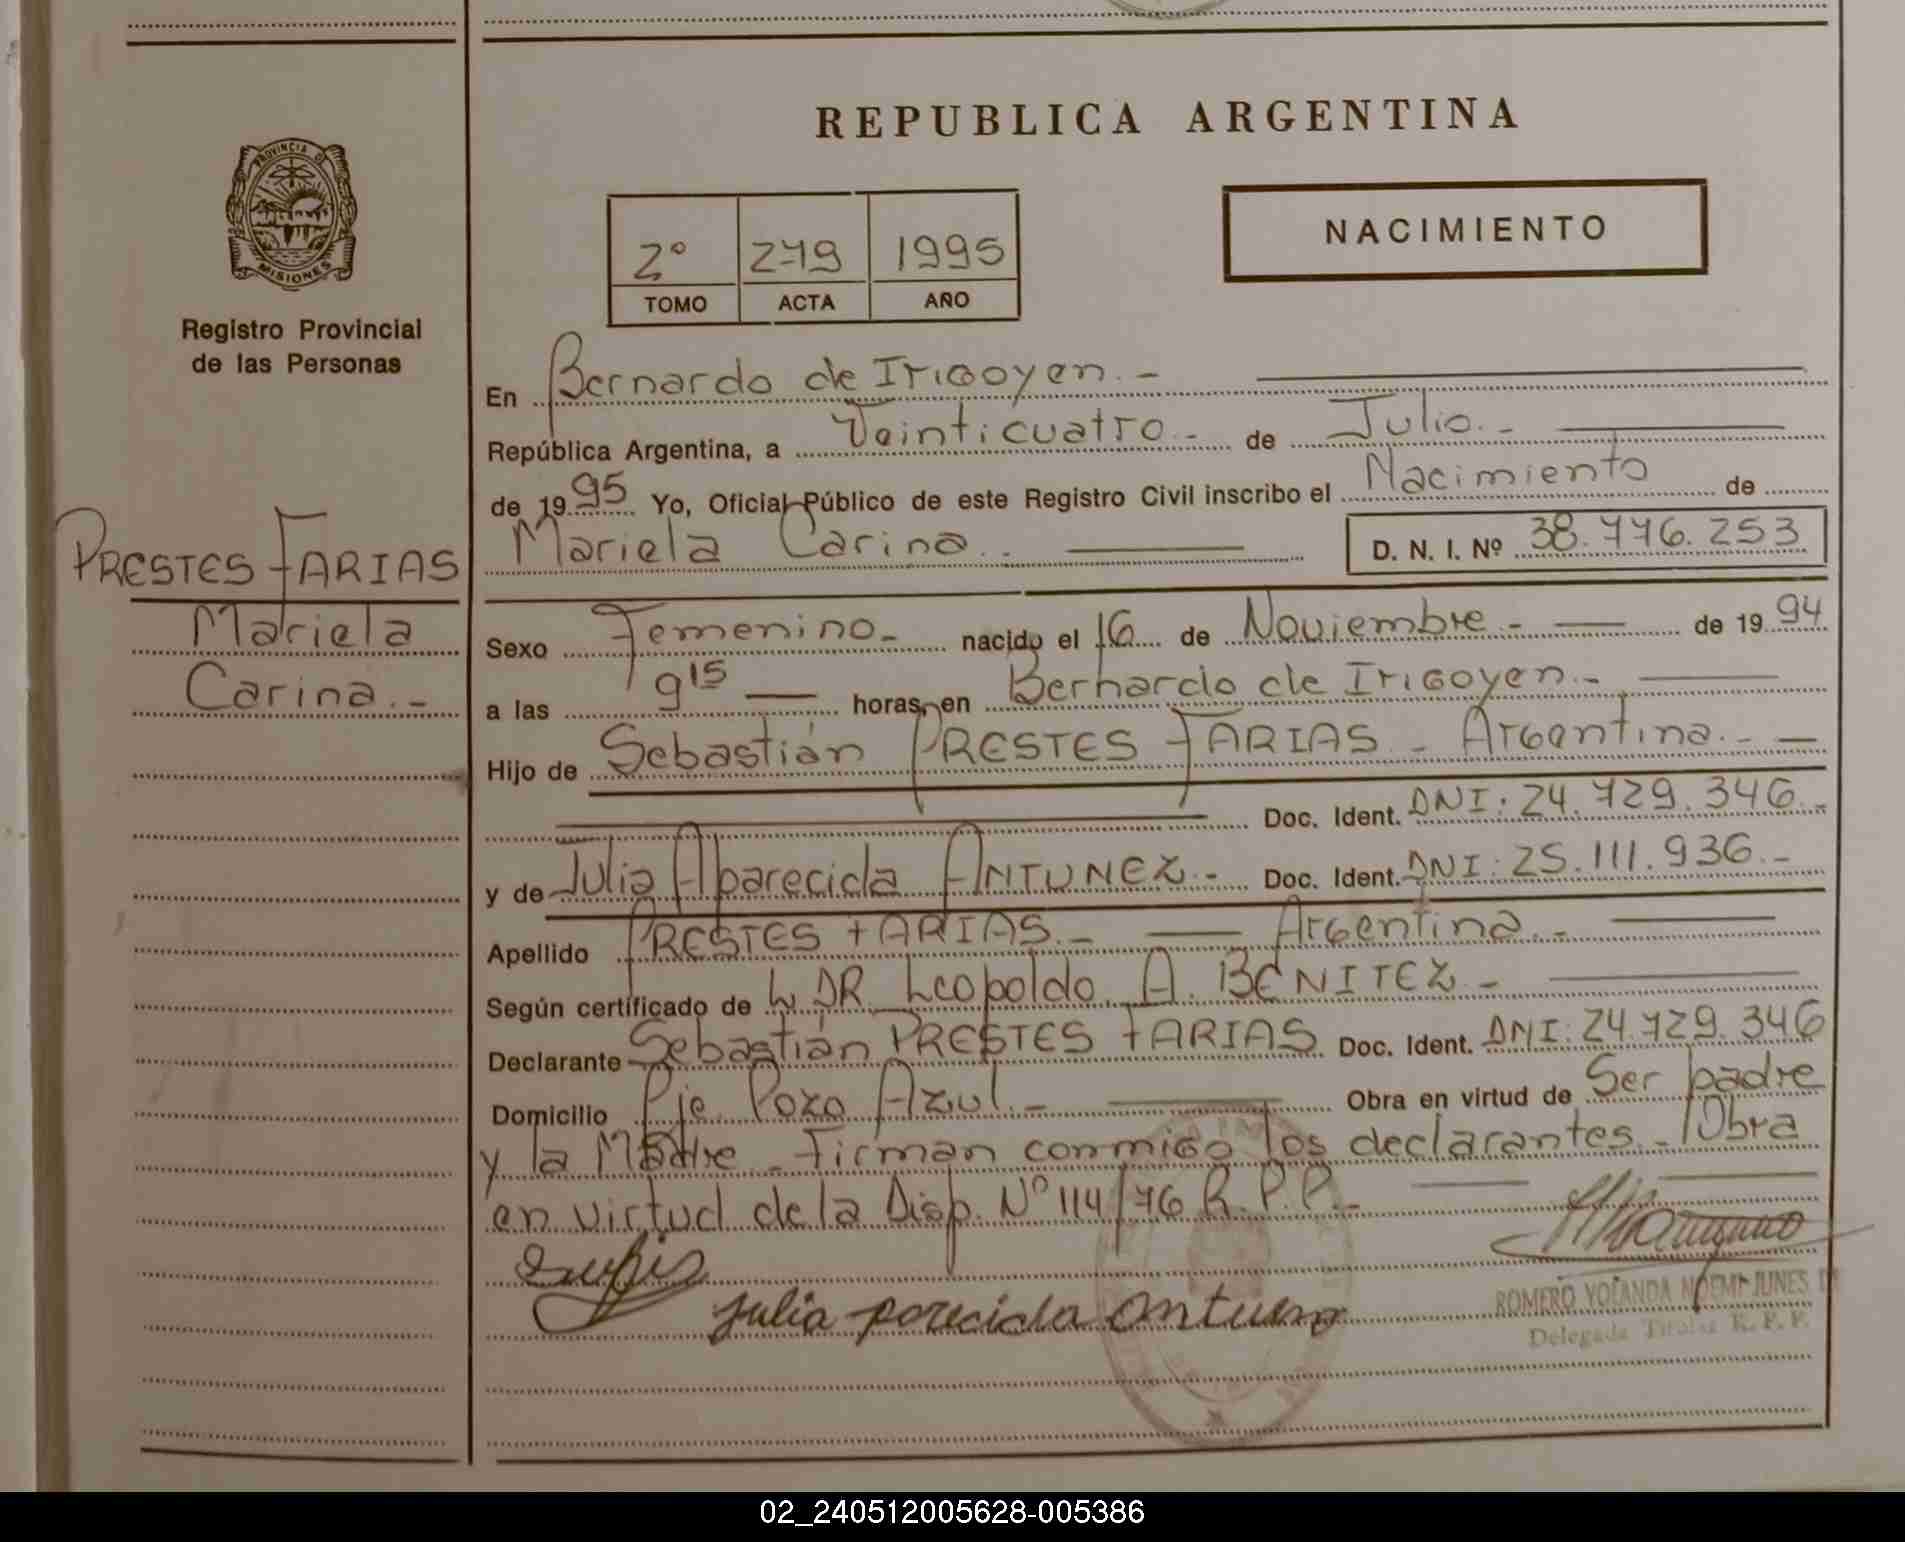 REPUBLICA ARGENTINA
PROVINCIA D
MISIONES
Registro Provincial
de las Personas
2º 279 1995
TOMO ACTA AÑO
NACIMIENTO
En Bernardo de Irigoyen.-
República Argentina, a Veinticuatro.- de Julio.-
de 1995 Yo, Oficial Público de este Registro Civil inscribo el Nacimiento de
Mariela Carina.. D. N. I. Nº 38.776.253
PRESTES FARIAS
Mariela
Carina.-
Sexo Femenino- nacido el 16 de Noviembre.- de 1994
a las 9 15 horas, en Bernardo de Irigoyen.-
Hijo de Sebastián PRESTES FARIAS - Argentina.-
Doc. Ident. DNI: 24.729.346.-
y de Julia Aparecida ANTUNEZ.- Doc. Ident. DNI: 25.111.936.-
Apellido PRESTES FARIAS.- Argentina.-
Según certificado de DR. Leopoldo A. BENITEZ.-
Declarante Sebastián PRESTES FARIAS Doc. Ident. DNI: 24.729.346
Domicilio Pje. Pozo Azul.- Obra en virtud de Ser padre
y la Madre - Firman conmigo los declarantes.- Obra
en virtud de la Disp. Nº 114/76 R.P.P.-
Julia parecida antunes
ROMERO YOLANDA NOEMI JUNES
Delegada Titular R. P. P.
02_240512005628-005386